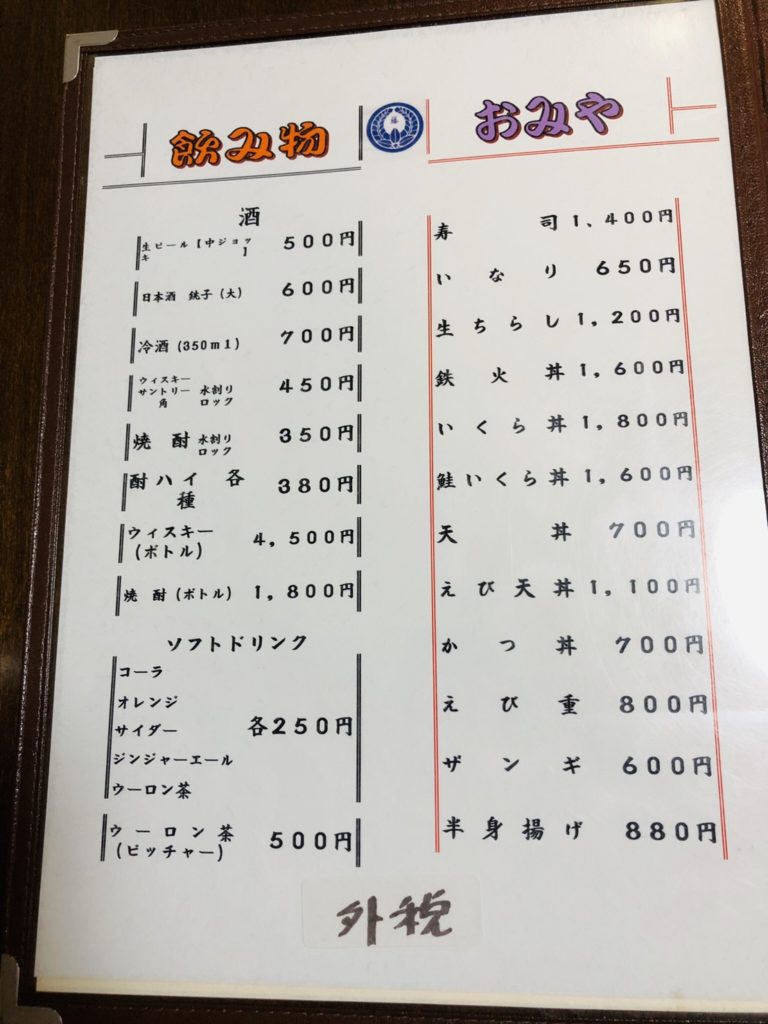 飲み物
酒
生ビール【中ジョッ
キ】
500円
日本酒 銚子(大) 600円
冷酒(350ml) 700円
ウィスキー
サントリー 水割り
角 ロック
450円
焼酎 水割り
ロック
350円
酎ハイ 各
種
380円
ウィスキー
(ボトル)
4,500円
焼酎(ボトル) 1,800円
ソフトドリンク
コーラ
オレンジ
サイダー 各250円
ジンジャーエール
ウーロン茶
ウーロン茶
(ピッチャー)
500円
おみや
寿司 1、400円
いなり 650円
生ちらし 1,200円
鉄火丼 1,600円
いくら丼 1,800円
鮭いくら丼 1,600円
天丼 700円
えび天丼 1,100円
かつ丼 700円
えび重 800円
ザンギ 600円
半身揚げ 880円
外税